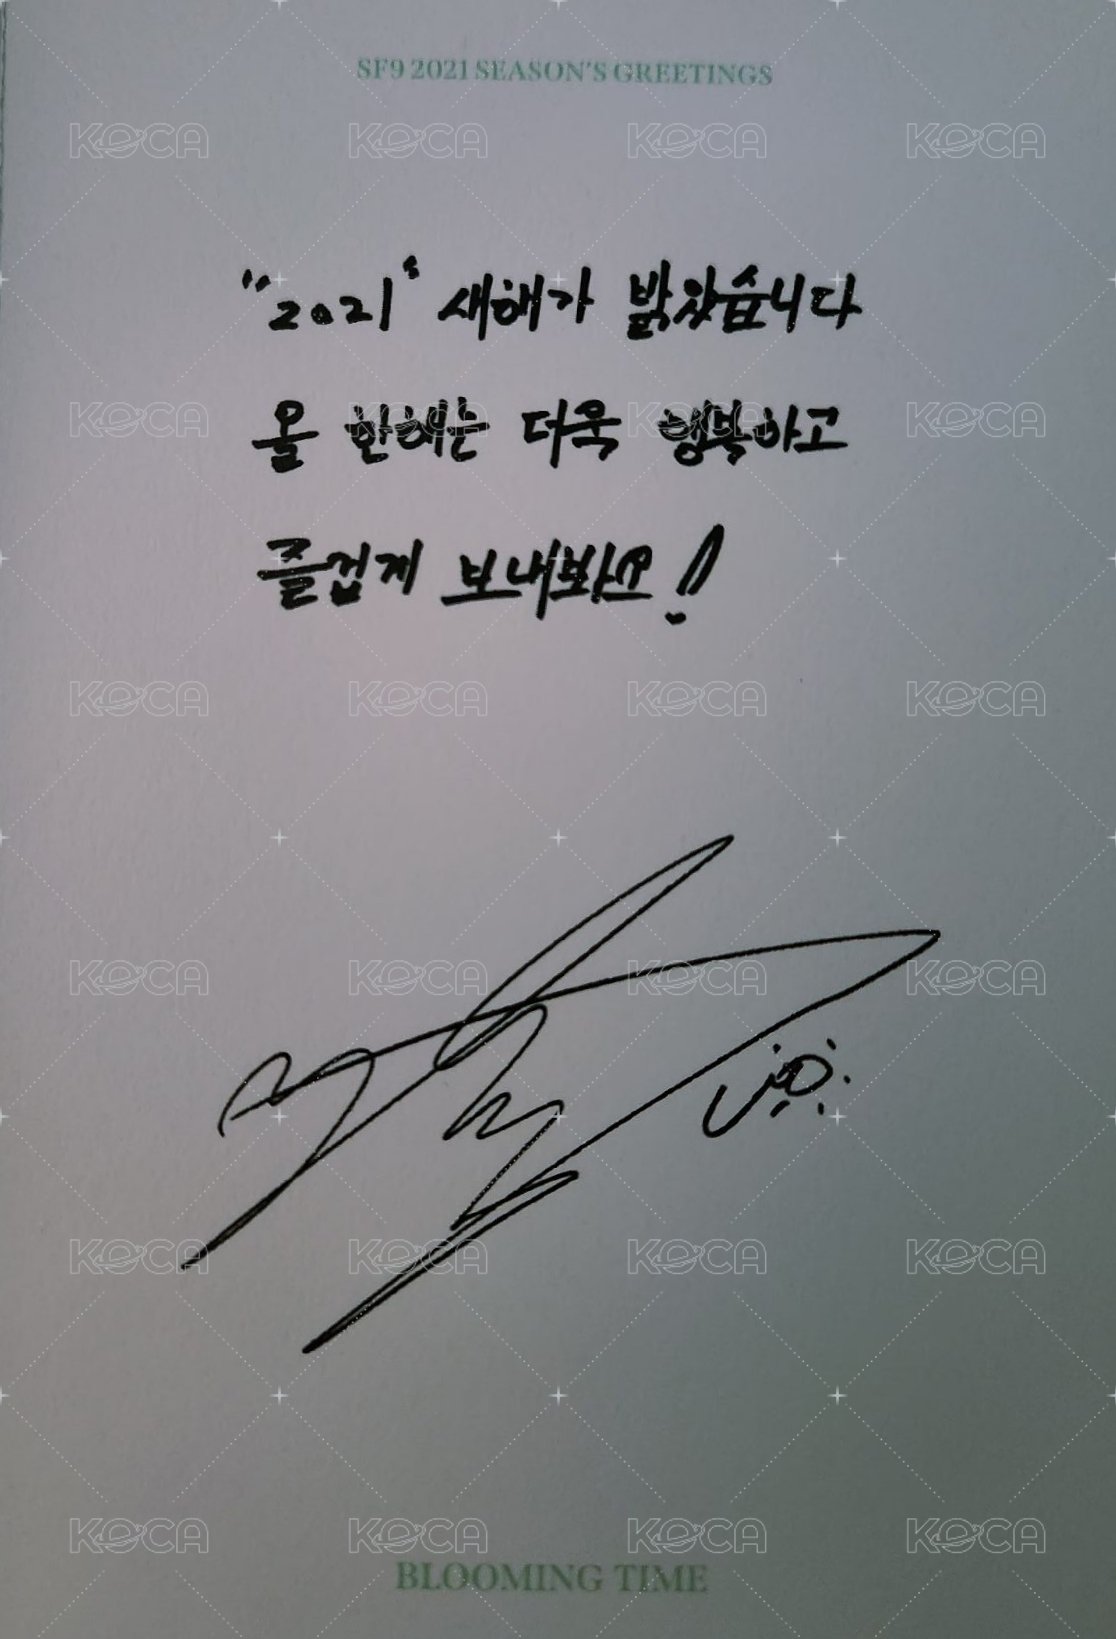 SF9 2021 SEASON'S GREETINGS
KOCA KOCA KOCA KOCA
"2021" 새해가 밝았습니다
올 한해는 더욱 행복하고
KOCA KOCA KOCA KOCA
즐겁게 보내봐요!
KOCA KOCA KOCA KOCA
KOCA KOCA KOCA KOCA
KOCA KOCA KOCA KOCA
KOCA KOCA KOCA KOCA
BLOOMING TIME